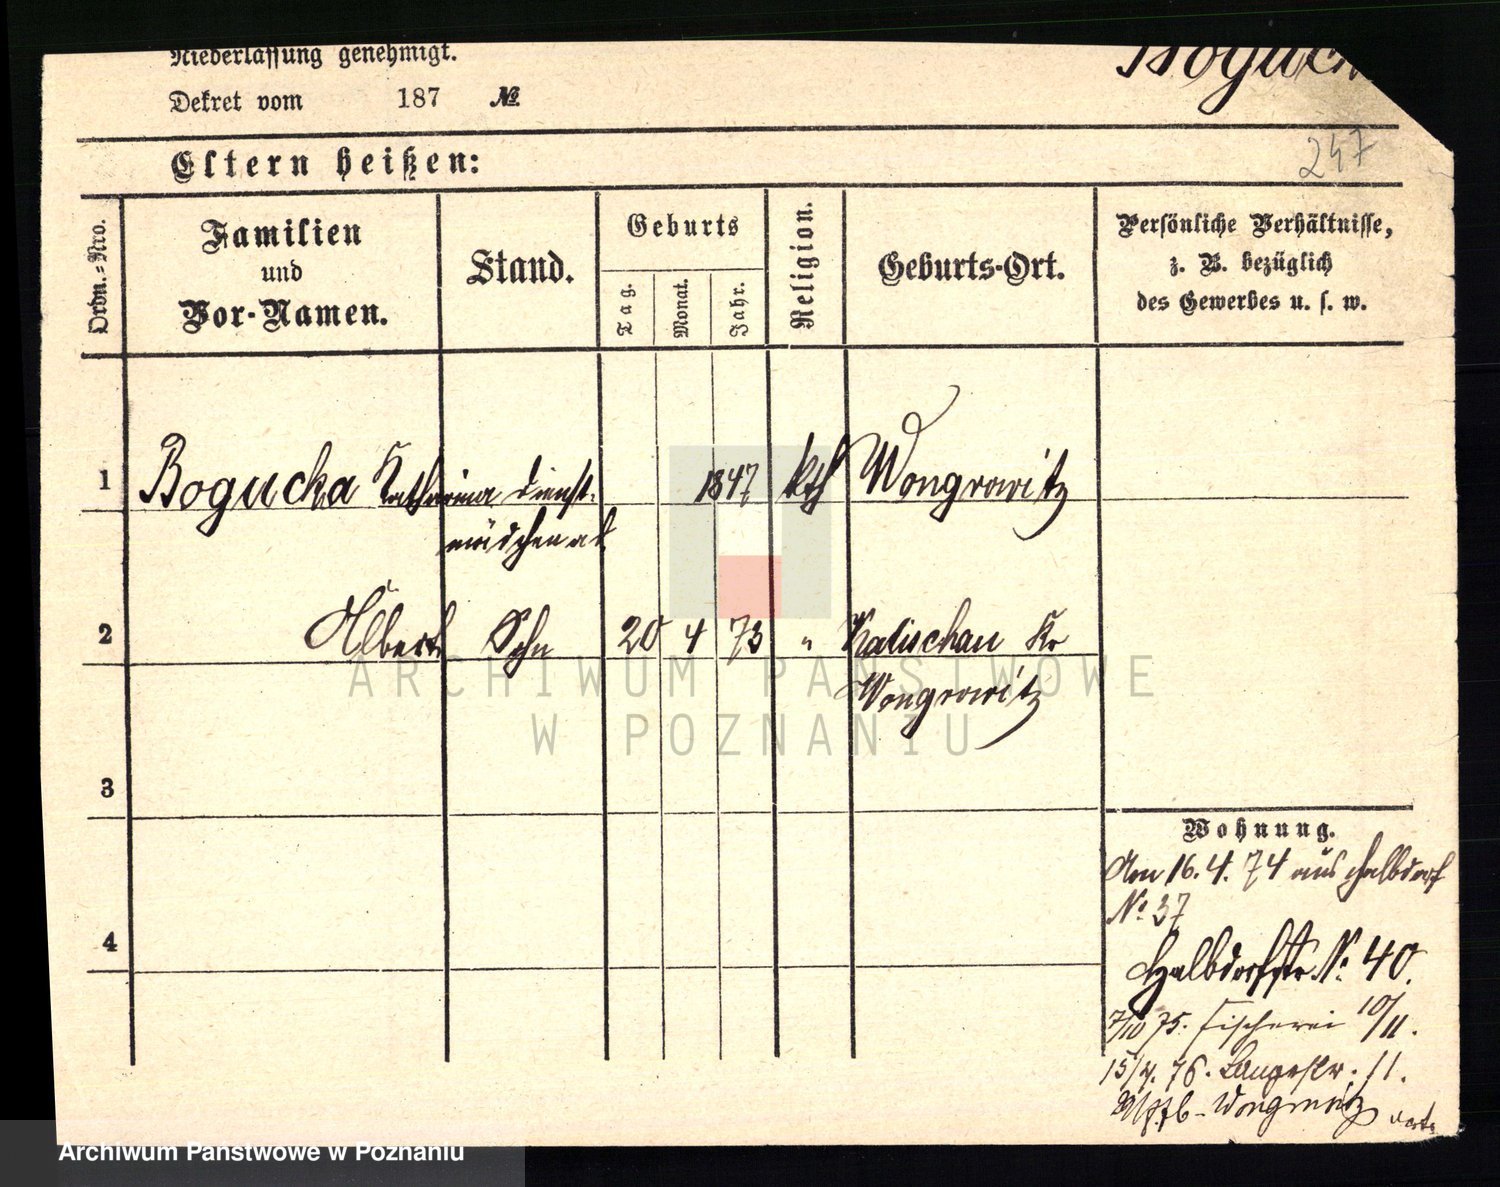 Niederlassung genehmigt.
Dekret vom 187 №
247
Eltern heißen:
Ordn.=Nro.
Familien
und
Vor-Namen.
Stand.
Geburts
Tag.
Monat.
Jahr.
Religion.
Geburts-Ort.
Persönliche Verhältnisse,
z. B. bezüglich
des Gewerbes u. s. w.
1 Bogucka Katharina Dienst- 1847 kth Wongrowitz
mädchen
2 Albert Sohn 20 4 73 " Kalischau Kr
Wongrowitz
3
4
Wohnung.
Am 16.4.74 aus Halbdorf
No 37
Halbdorfstr No 40.
7/10 75. Fischerei 10/11.
15/4. 76. Langestr. 11.
Wongrowitz
ARCHIWUM PAŃSTWOWE
W POZNANIU
Archiwum Państwowe w Poznaniu